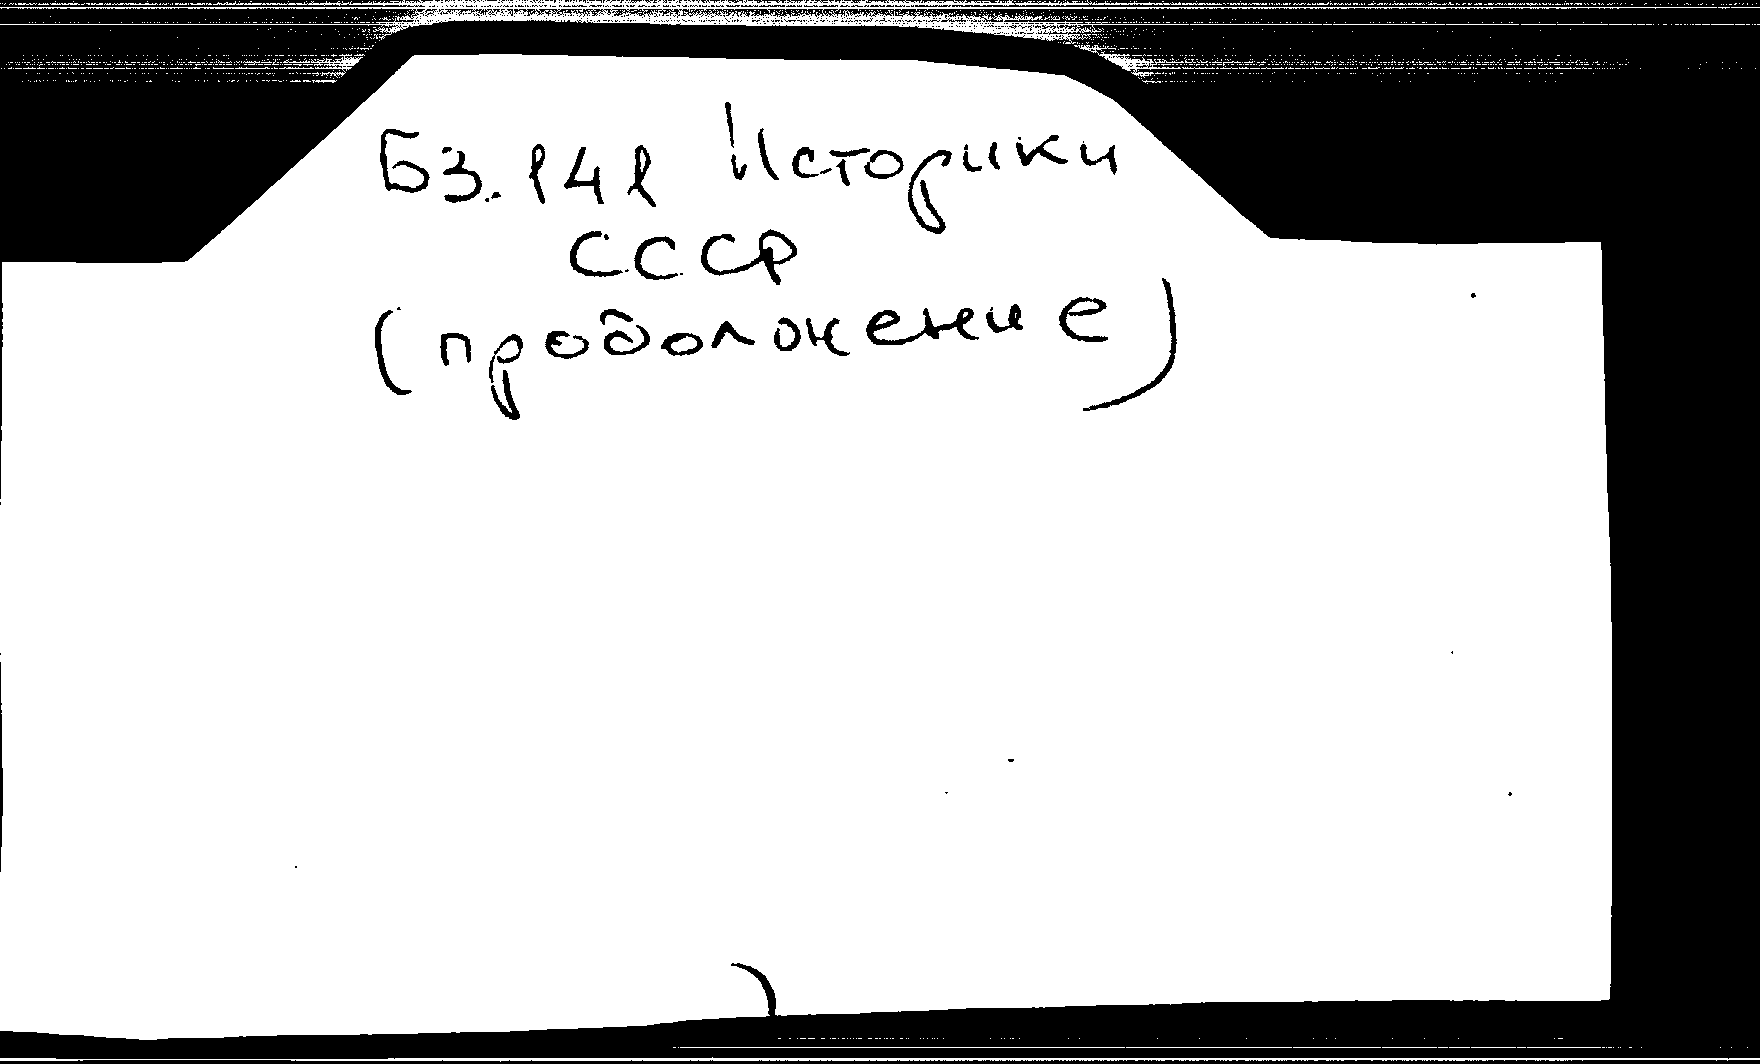 Б3.141 Историки
СССР
(продолжение)